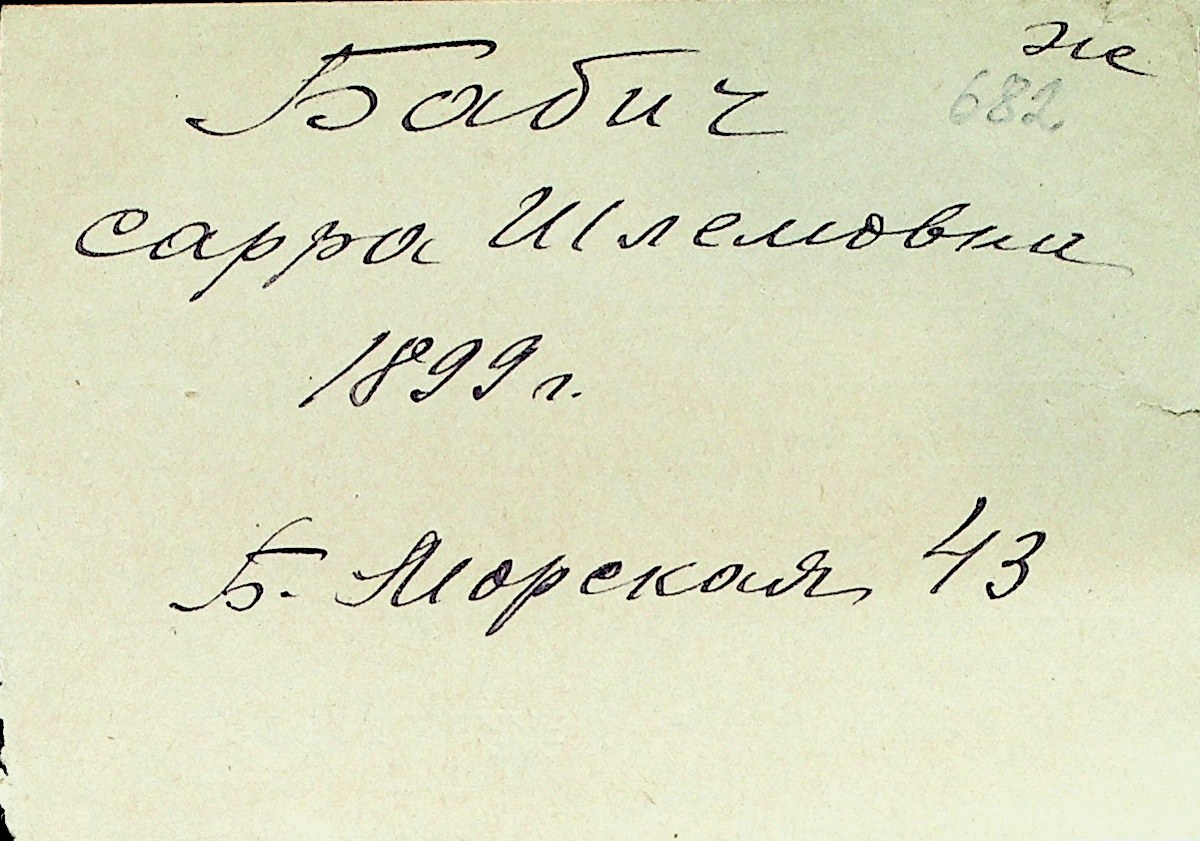 же
Бабич 682
сарра Шлемовна
1899 г.
Б. Морская 43